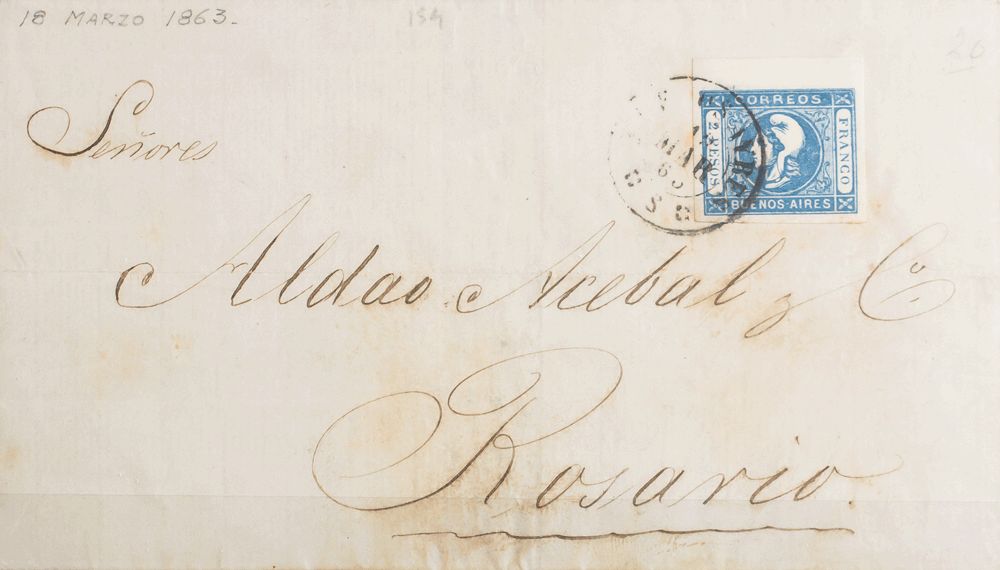 18 MARZO 1863.
154
20
Señores
CORREOS
FRANCO
2. PESOS
BUENOS-AIRES
MAR
63
Aldao Acebal y Cª
Rosario.